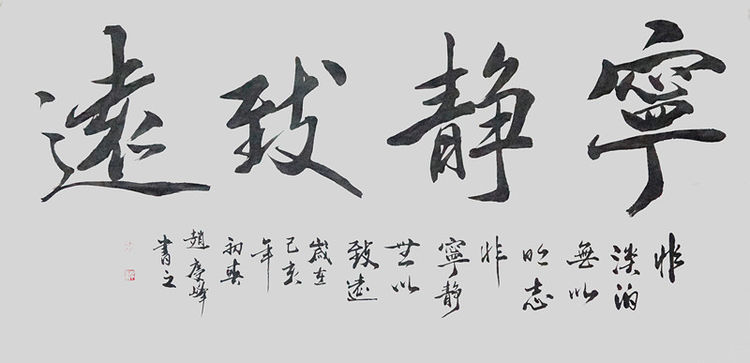 寧静致遠
非
淡泊
無以
明志
非
寧静
無以
致遠
歲在
己亥
年
初春
趙慶峰
書之